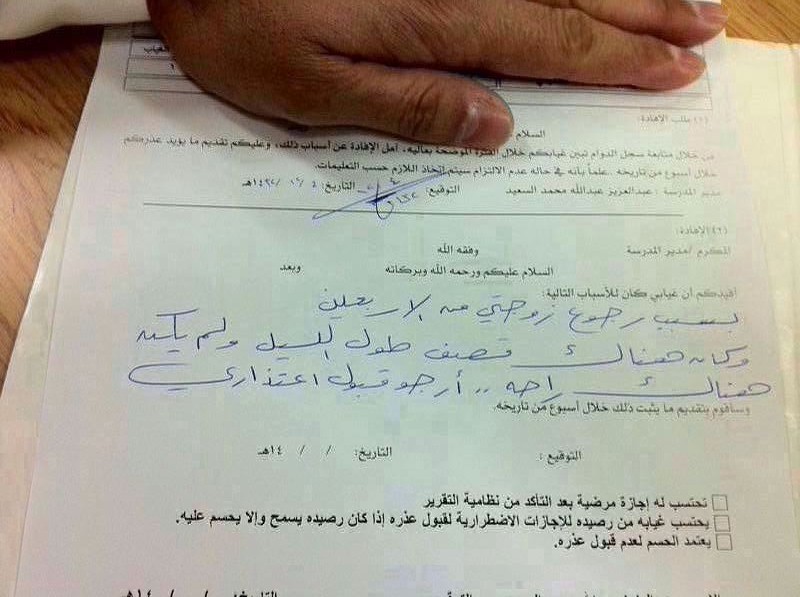 الغياب
١
(١) طلب الإفادة:
السلام
من خلال متابعة سجل الدوام تبين غيابكم خلال الفترة الموضحة بعاليه، آمل الإفادة عن أسباب ذلك، وعليكم تقديم ما يؤيد عذركم
خلال أسبوع من تاريخه. علماً بأنه في حاله عدم الالتزام سيتم إتخاذ اللازم حسب التعليمات.
مدير المدرسة : عبدالعزيز عبدالله محمد السعيد التوقيع: التاريخ: ٤ / ١٤٣٢هـ
(٢) الإفادة:
المكرم /مدير المدرسة وفقه الله
السلام عليكم ورحمه الله وبركاته وبعد
أفيدكم أن غيابي كان للأسباب التالية:
بسبب رجوع زوجتي من الاربعين
وكان هناك قصف طول الليل ولم يكن
هناك راحه .. أرجو قبول اعتذاري
وسأقوم بتقديم ما يثبت ذلك خلال أسبوع من تاريخه.
التوقيع : التاريخ: / / ١٤هـ
تحتسب له إجازة مرضية بعد التأكد من نظامية التقرير
يحتسب غيابه من رصيده للإجازات الاضطرارية لقبول عذره إذا كان رصيده يسمح وإلا يحسم عليه.
يعتمد الحسم لعدم قبول عذره.